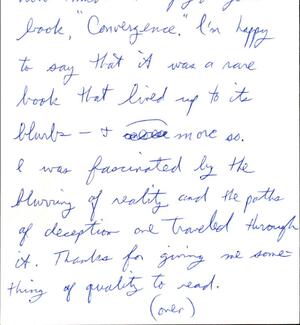 book, "Convergence." I'm happy
to say that it was a rare
book that lived up to its
blurbs - & more so.
I was fascinated by the
blurring of reality and the paths
of deception one traveled through
it. Thanks for giving me some
thing of quality to read.
(over)